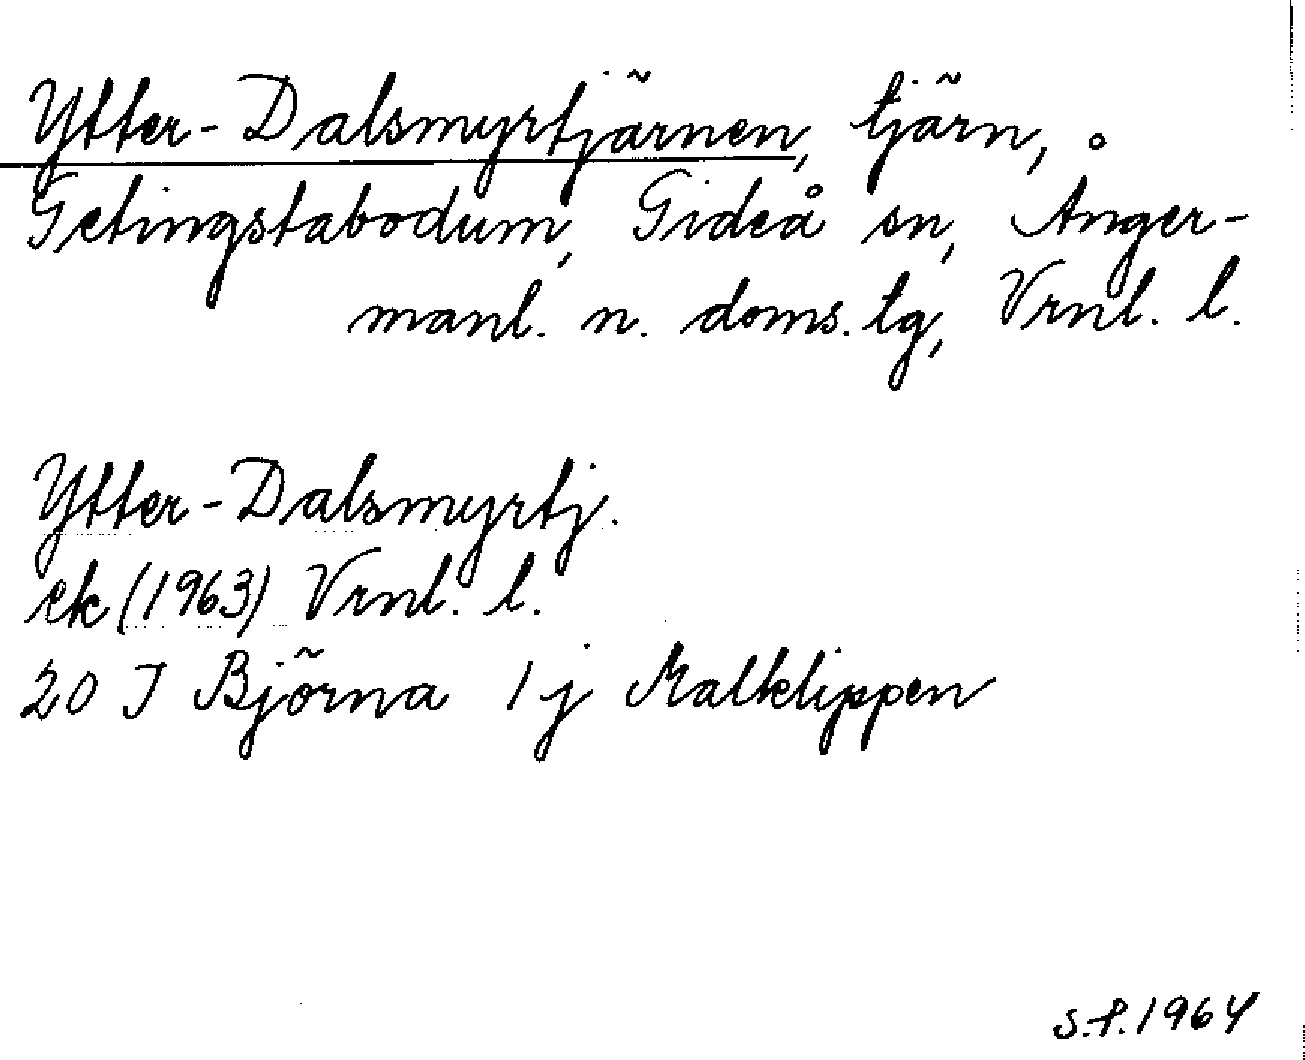 Ytter-Dalsmyrtjärnen, tjärn,
Getingstabodum, Gideå sn, Ånger-
manl. n. doms. lg, Vrnl. l.
Ytter-Dalsmyrtj.
ek (1963) Vrnl. l.
20 J Björna 1 j Malklippen
S.P. 1964